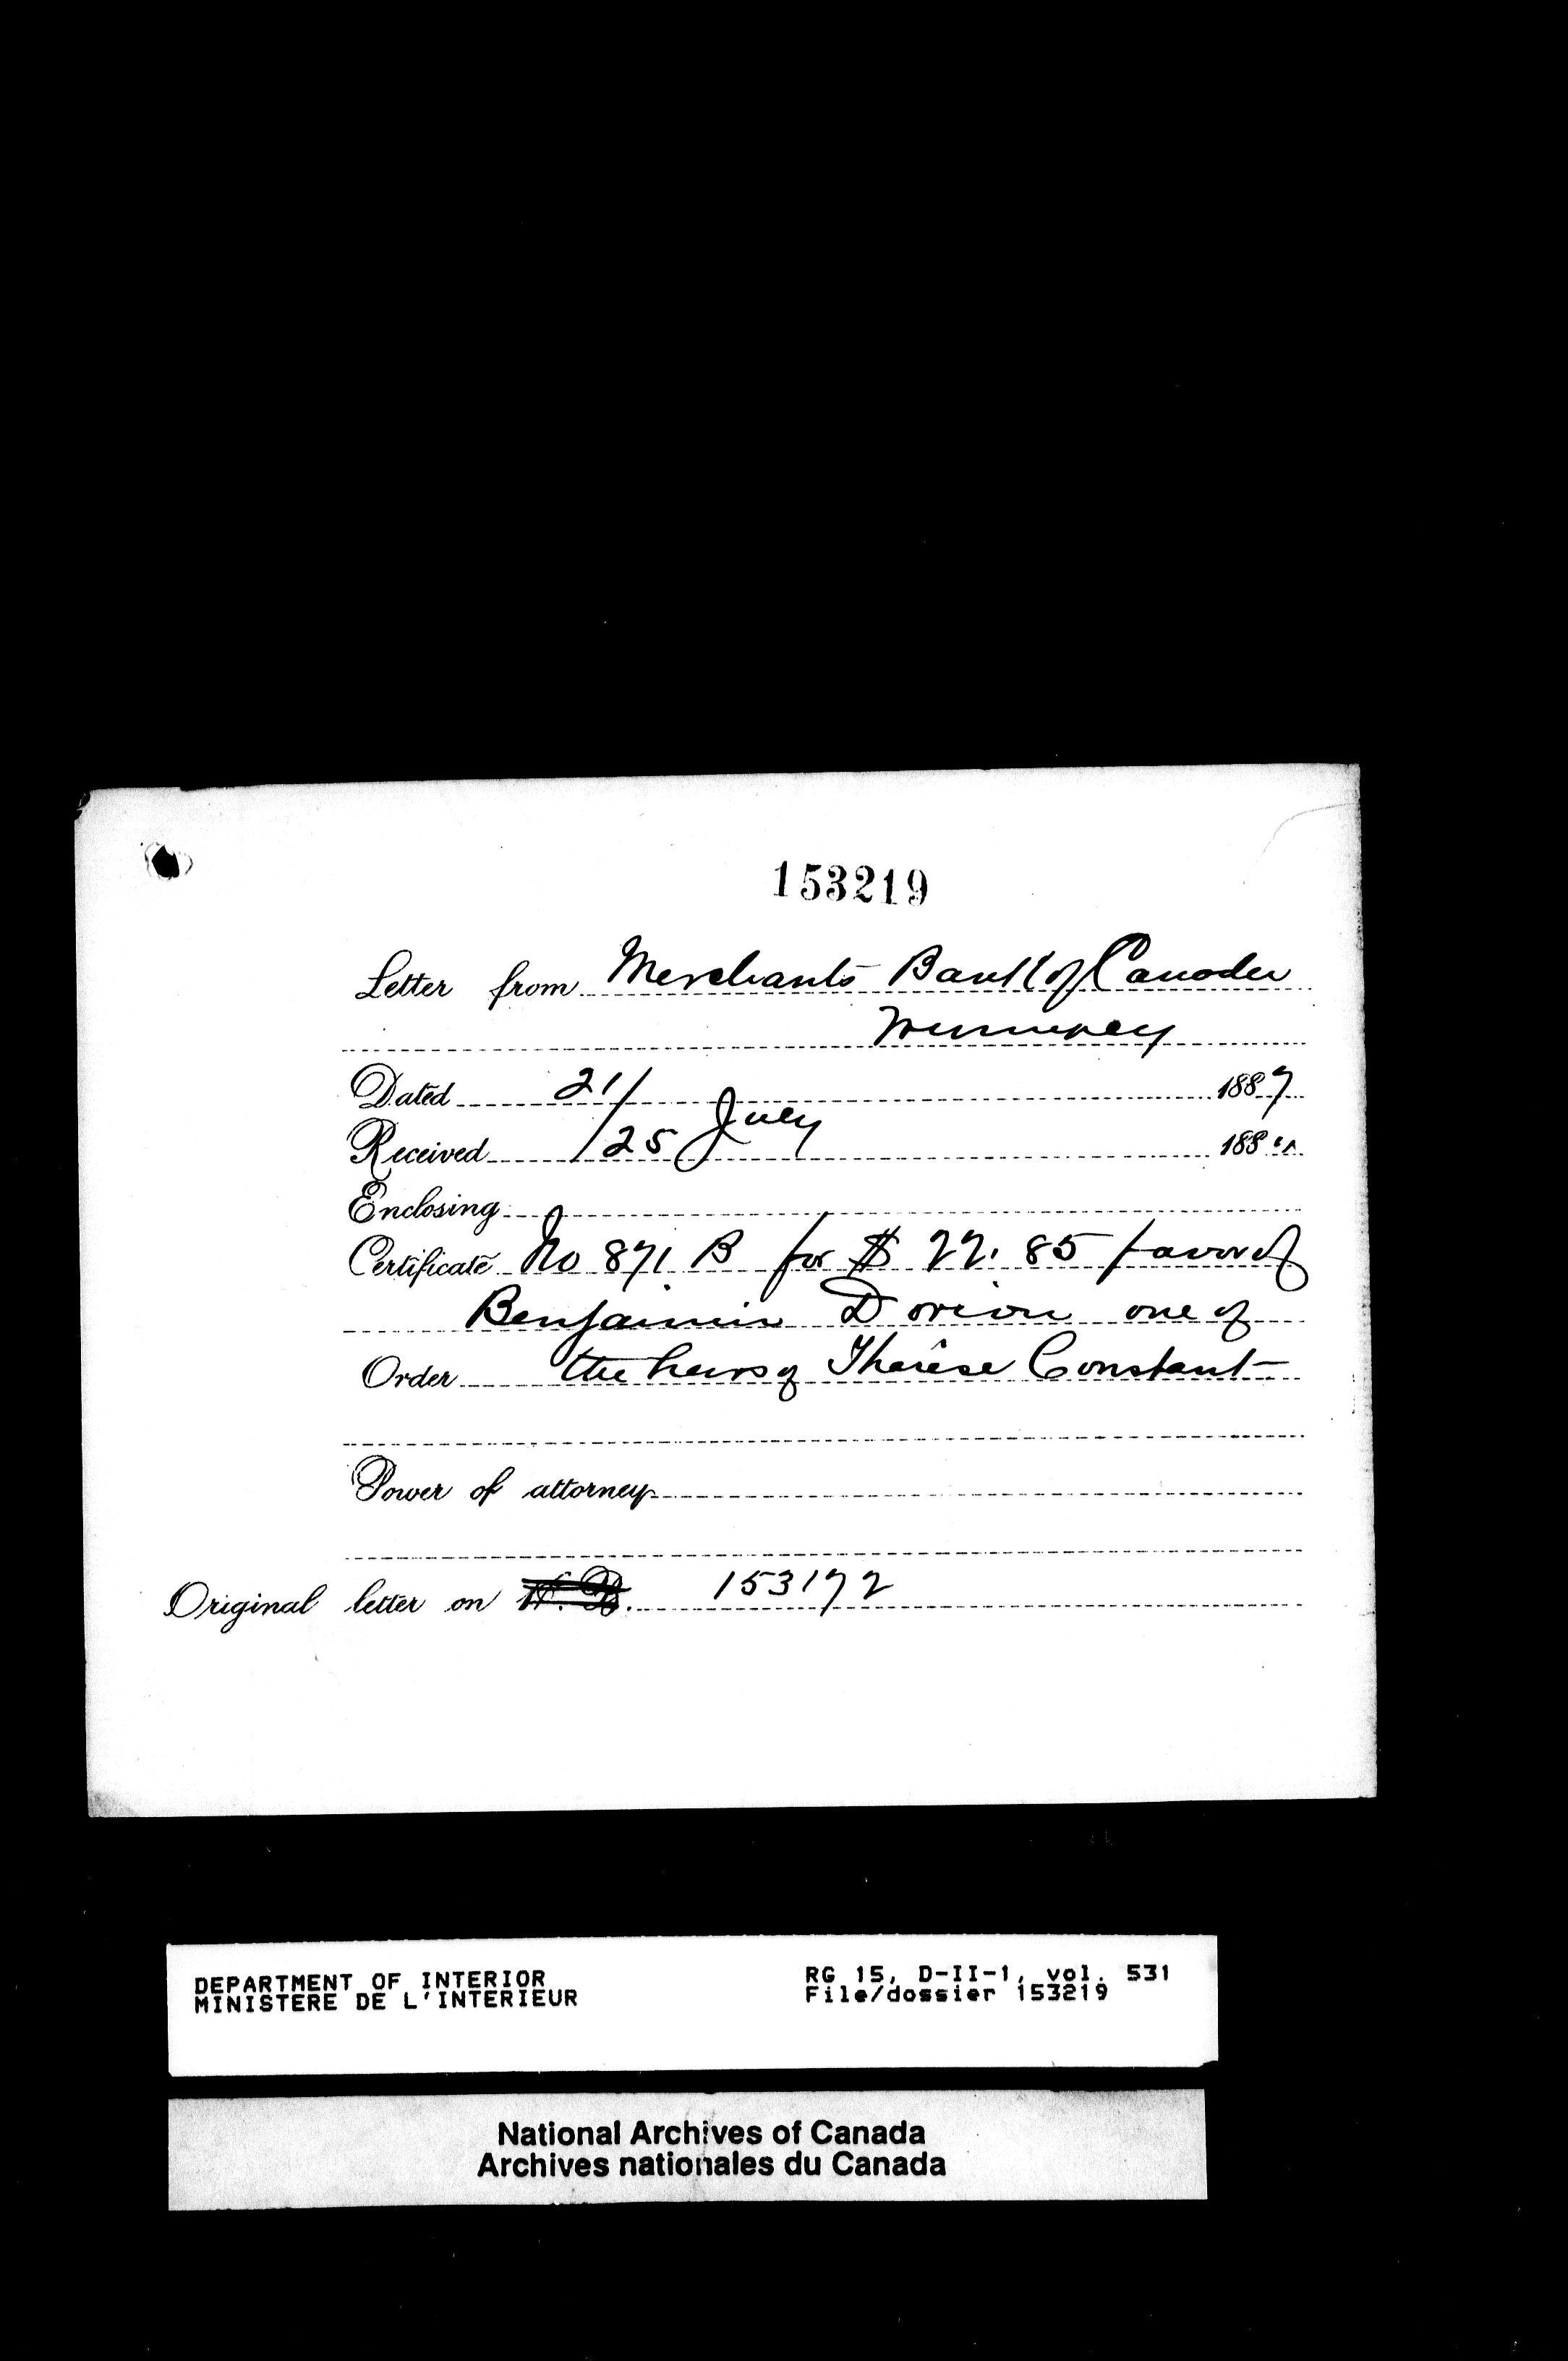 153219
Letter from Merchants Bank of Canada
Winnipeg
Dated 21/ July 1887
Received /25 188 "
Enclosing
Certificate No 871 B for $ 22.85 favor of
Benjamin Dorion one of
Order the heirs of Thérèse Constant
Power of attorney
Original letter on H. B. 153172
DEPARTMENT OF INTERIOR RG 15, D-II-1, vol. 531
MINISTERE DE L'INTERIEUR File/dossier 153219
National Archives of Canada
Archives nationales du Canada